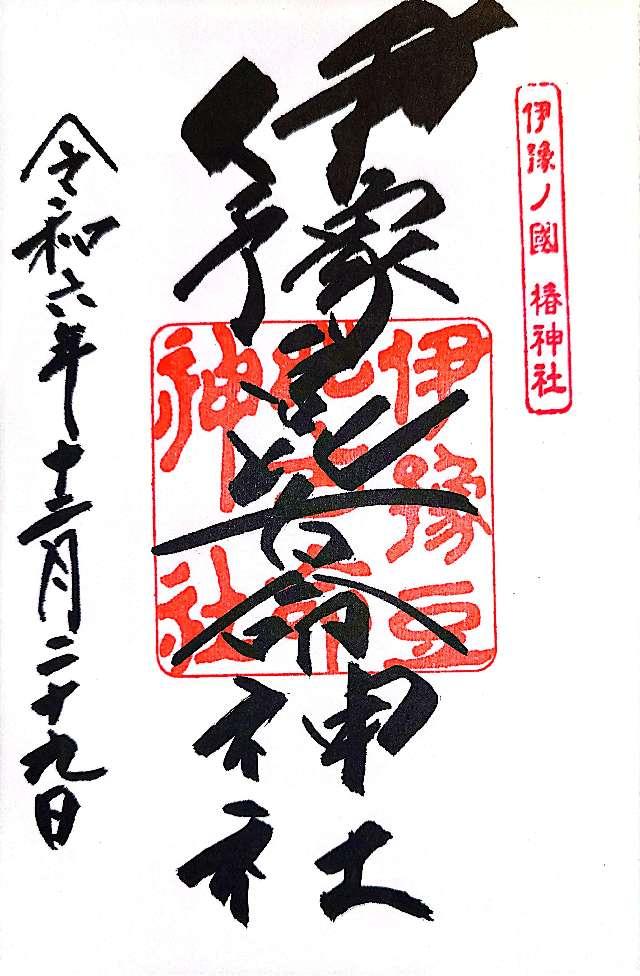 伊豫ノ國 椿神社
伊豫豆比古命神社
伊豫豆
比古命
神社
令和六年十二月二十九日